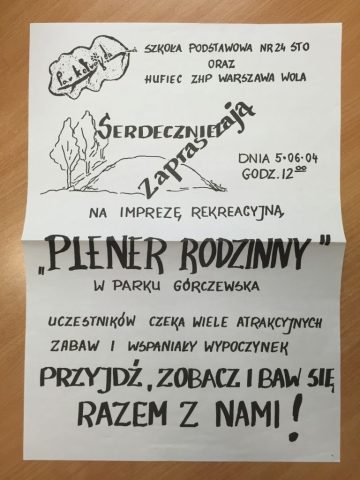 SZKOŁA PODSTAWOWA NR 24 STO
ORAZ
HUFIEC ZHP WARSZAWA WOLA
SERDECZNIE
Zapraszają
DNIA 5.06.04
GODZ. 12⁰⁰
NA IMPREZĘ REKREACYJNĄ
„PLENER RODZINNY”
W PARKU GÓRCZEWSKA
UCZESTNIKÓW CZEKA WIELE ATRAKCYJNYCH
ZABAW I WSPANIAŁY WYPOCZYNEK
PRZYJDŹ, ZOBACZ I BAW SIĘ
RAZEM Z NAMI!